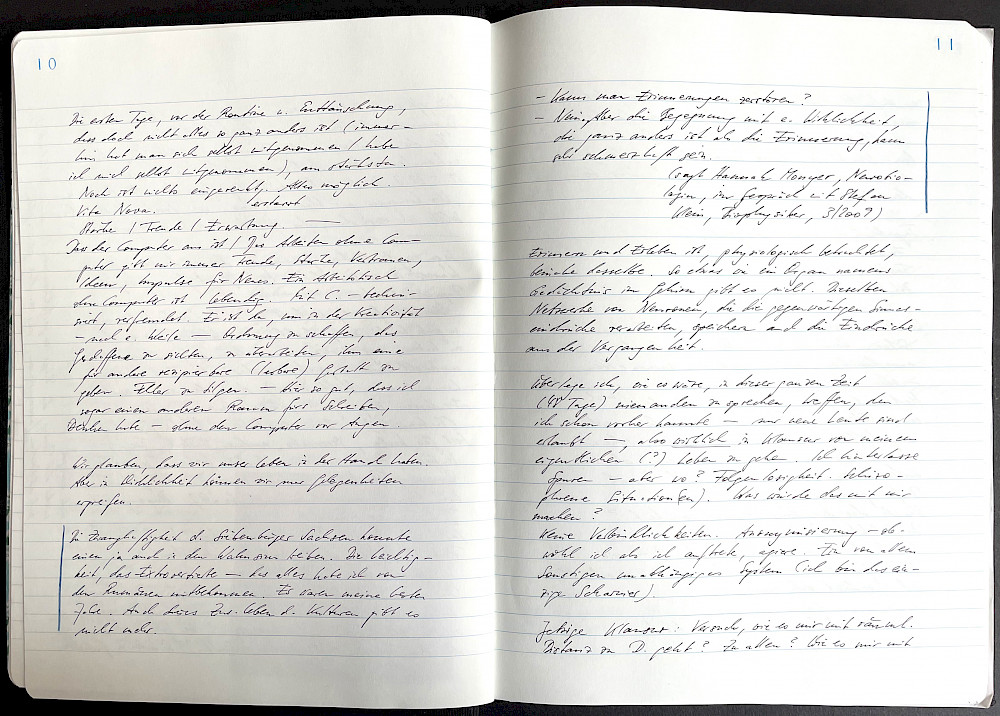 10
Die ersten Tage, vor der Routine u. Enttäuschung,
dass doch nicht alles so ganz anders ist (immer-
hin hat man sich selbst mitgenommen / habe
ich mich selbst mitgenommen), am stärksten.
Noch ist nichts eingereiht. Alles möglich.
erstarrt
Vita Nova.
Stärke / Freude / Erwartung. —
Dass der Computer aus ist! Das Arbeiten ohne Com-
puter gibt mir immer Freude, Stärke, Vertrauen,
Ideen, Impulse für Neues. Ein Arbeitstisch
ohne Computer ist lebendig. Mit C. – techni-
siert, verfremdet. Er ist da, um in der Kreativität
– nach e. Weile – Ordnung zu schaffen, das
Geschaffene zu sichten, zu überarbeiten, ihm eine
für andere rezipierbare (lesbare) Gestalt zu
geben. Fehler zu tilgen. – Hier so gut, dass ich
sogar einen anderen Raum fürs Schreiben,
Denken habe – ohne den Computer vor Augen.
Wir glauben, dass wir unser Leben in der Hand haben.
Aber in Wirklichkeit können wir nur Gelegenheiten
ergreifen.
Die Zwanghaftigkeit d. Siebenbürger Sachsen konnte
einen ja auch in den Wahnsinn treiben. Die Leichtig-
keit, das Extrovertierte – das alles habe ich von
den Rumänen mitbekommen. Es waren meine besten
Jahre. Auch dieses Zus.leben d. Kulturen gibt es
nicht mehr.
11
– Kann man Erinnerungen zerstören?
– Nein. Aber die Begegnung mit e. Wirklichkeit,
die ganz anders ist als die Erinnerung, kann
sehr schmerzhaft sein.
(sagt Hannah Monyer, Neurolo-
gin, im Gespräch mit Stefan
Klein, Biophysiker, 3/2009)
Erinnern und Erleben ist, physiologisch betrachtet,
beinahe dasselbe. So etwas wie ein Organ namens
Gedächtnis im Gehirn gibt es nicht. Dieselben
Netzwerke von Neuronen, die die gegenwärtigen Sinnes-
eindrücke verarbeiten, speichern auch die Eindrücke
aus der Vergangenheit.
Überlege ich, wie es wäre, in dieser ganzen Zeit
(48 Tage) niemanden zu sprechen, treffen, den
ich schon vorher kannte – nur neue Leute sind
erlaubt –, also wirklich in Klausur von meinem
eigentlichen (?) Leben zu gehen. Ich hinterlasse
Spuren – aber wo? Folgenlosigkeit. Schizo-
phrene Situation(en). Was würde das mit mir
machen?
Keine Verbindlichkeiten. Anonymisierung – ob-
wohl ich als ich auftrete, agiere. Ein von allem
Sonstigen unabhängiges System (ich bin das ein-
zige Scharnier).
Jetzige Klausur: Versuch, wie es mir mit räuml.
Distanz zu D. geht? Zu allem? Wie es mir mit